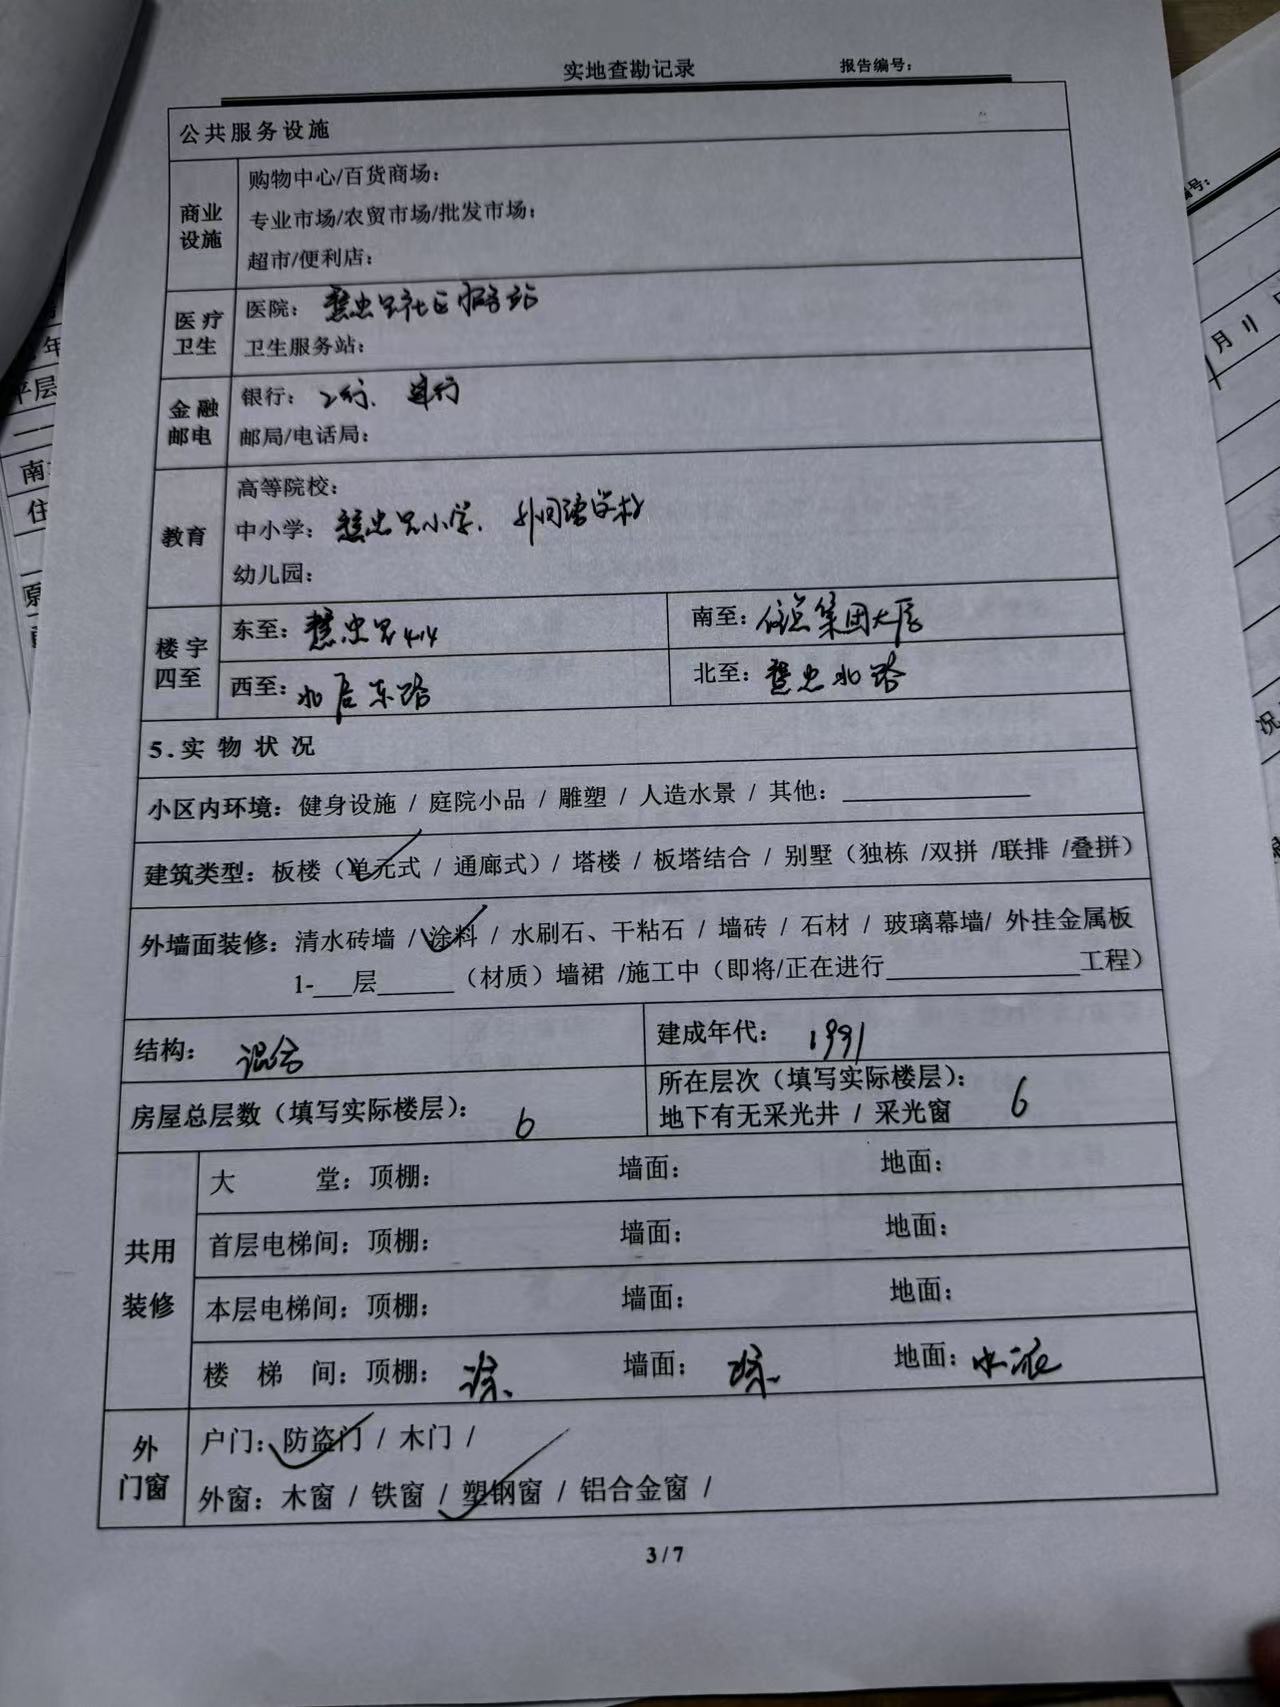 实地查勘记录 报告编号：
公共服务设施
商业设施
购物中心/百货商场：
专业市场/农贸市场/批发市场：
超市/便利店：
医疗卫生
医院： 慧忠里社区服务站
卫生服务站：
金融邮电
银行： 工行、建行
邮局/电话局：
教育
高等院校：
中小学： 慧忠里小学、外国语学校
幼儿园：
楼宇四至
东至： 慧忠里414 南至： 住总集团大厦
西至： 北辰东路 北至： 慧忠北路
5.实物状况
小区内环境：健身设施 / 庭院小品 / 雕塑 / 人造水景 / 其他：
建筑类型：板楼（单元式 / 通廊式）/ 塔楼 / 板塔结合 / 别墅（独栋 /双拼 /联排 /叠拼）
外墙面装修：清水砖墙 / 涂料 / 水刷石、干粘石 / 墙砖 / 石材 / 玻璃幕墙/ 外挂金属板
1-___层______（材质）墙裙 /施工中（即将/正在进行_______________工程）
结构： 混合 建成年代： 1991
房屋总层数（填写实际楼层）： 6 所在层次（填写实际楼层）： 6
地下有无采光井 / 采光窗
共用装修
大堂：顶棚： 墙面： 地面：
首层电梯间：顶棚： 墙面： 地面：
本层电梯间：顶棚： 墙面： 地面：
楼梯间：顶棚： 涂 墙面： 涂 地面：水泥
外门窗
户门：防盗门 / 木门 /
外窗：木窗 / 铁窗 / 塑钢窗 / 铝合金窗 /
3 / 7
编号：
月 日
年
平层
南
住
原
况